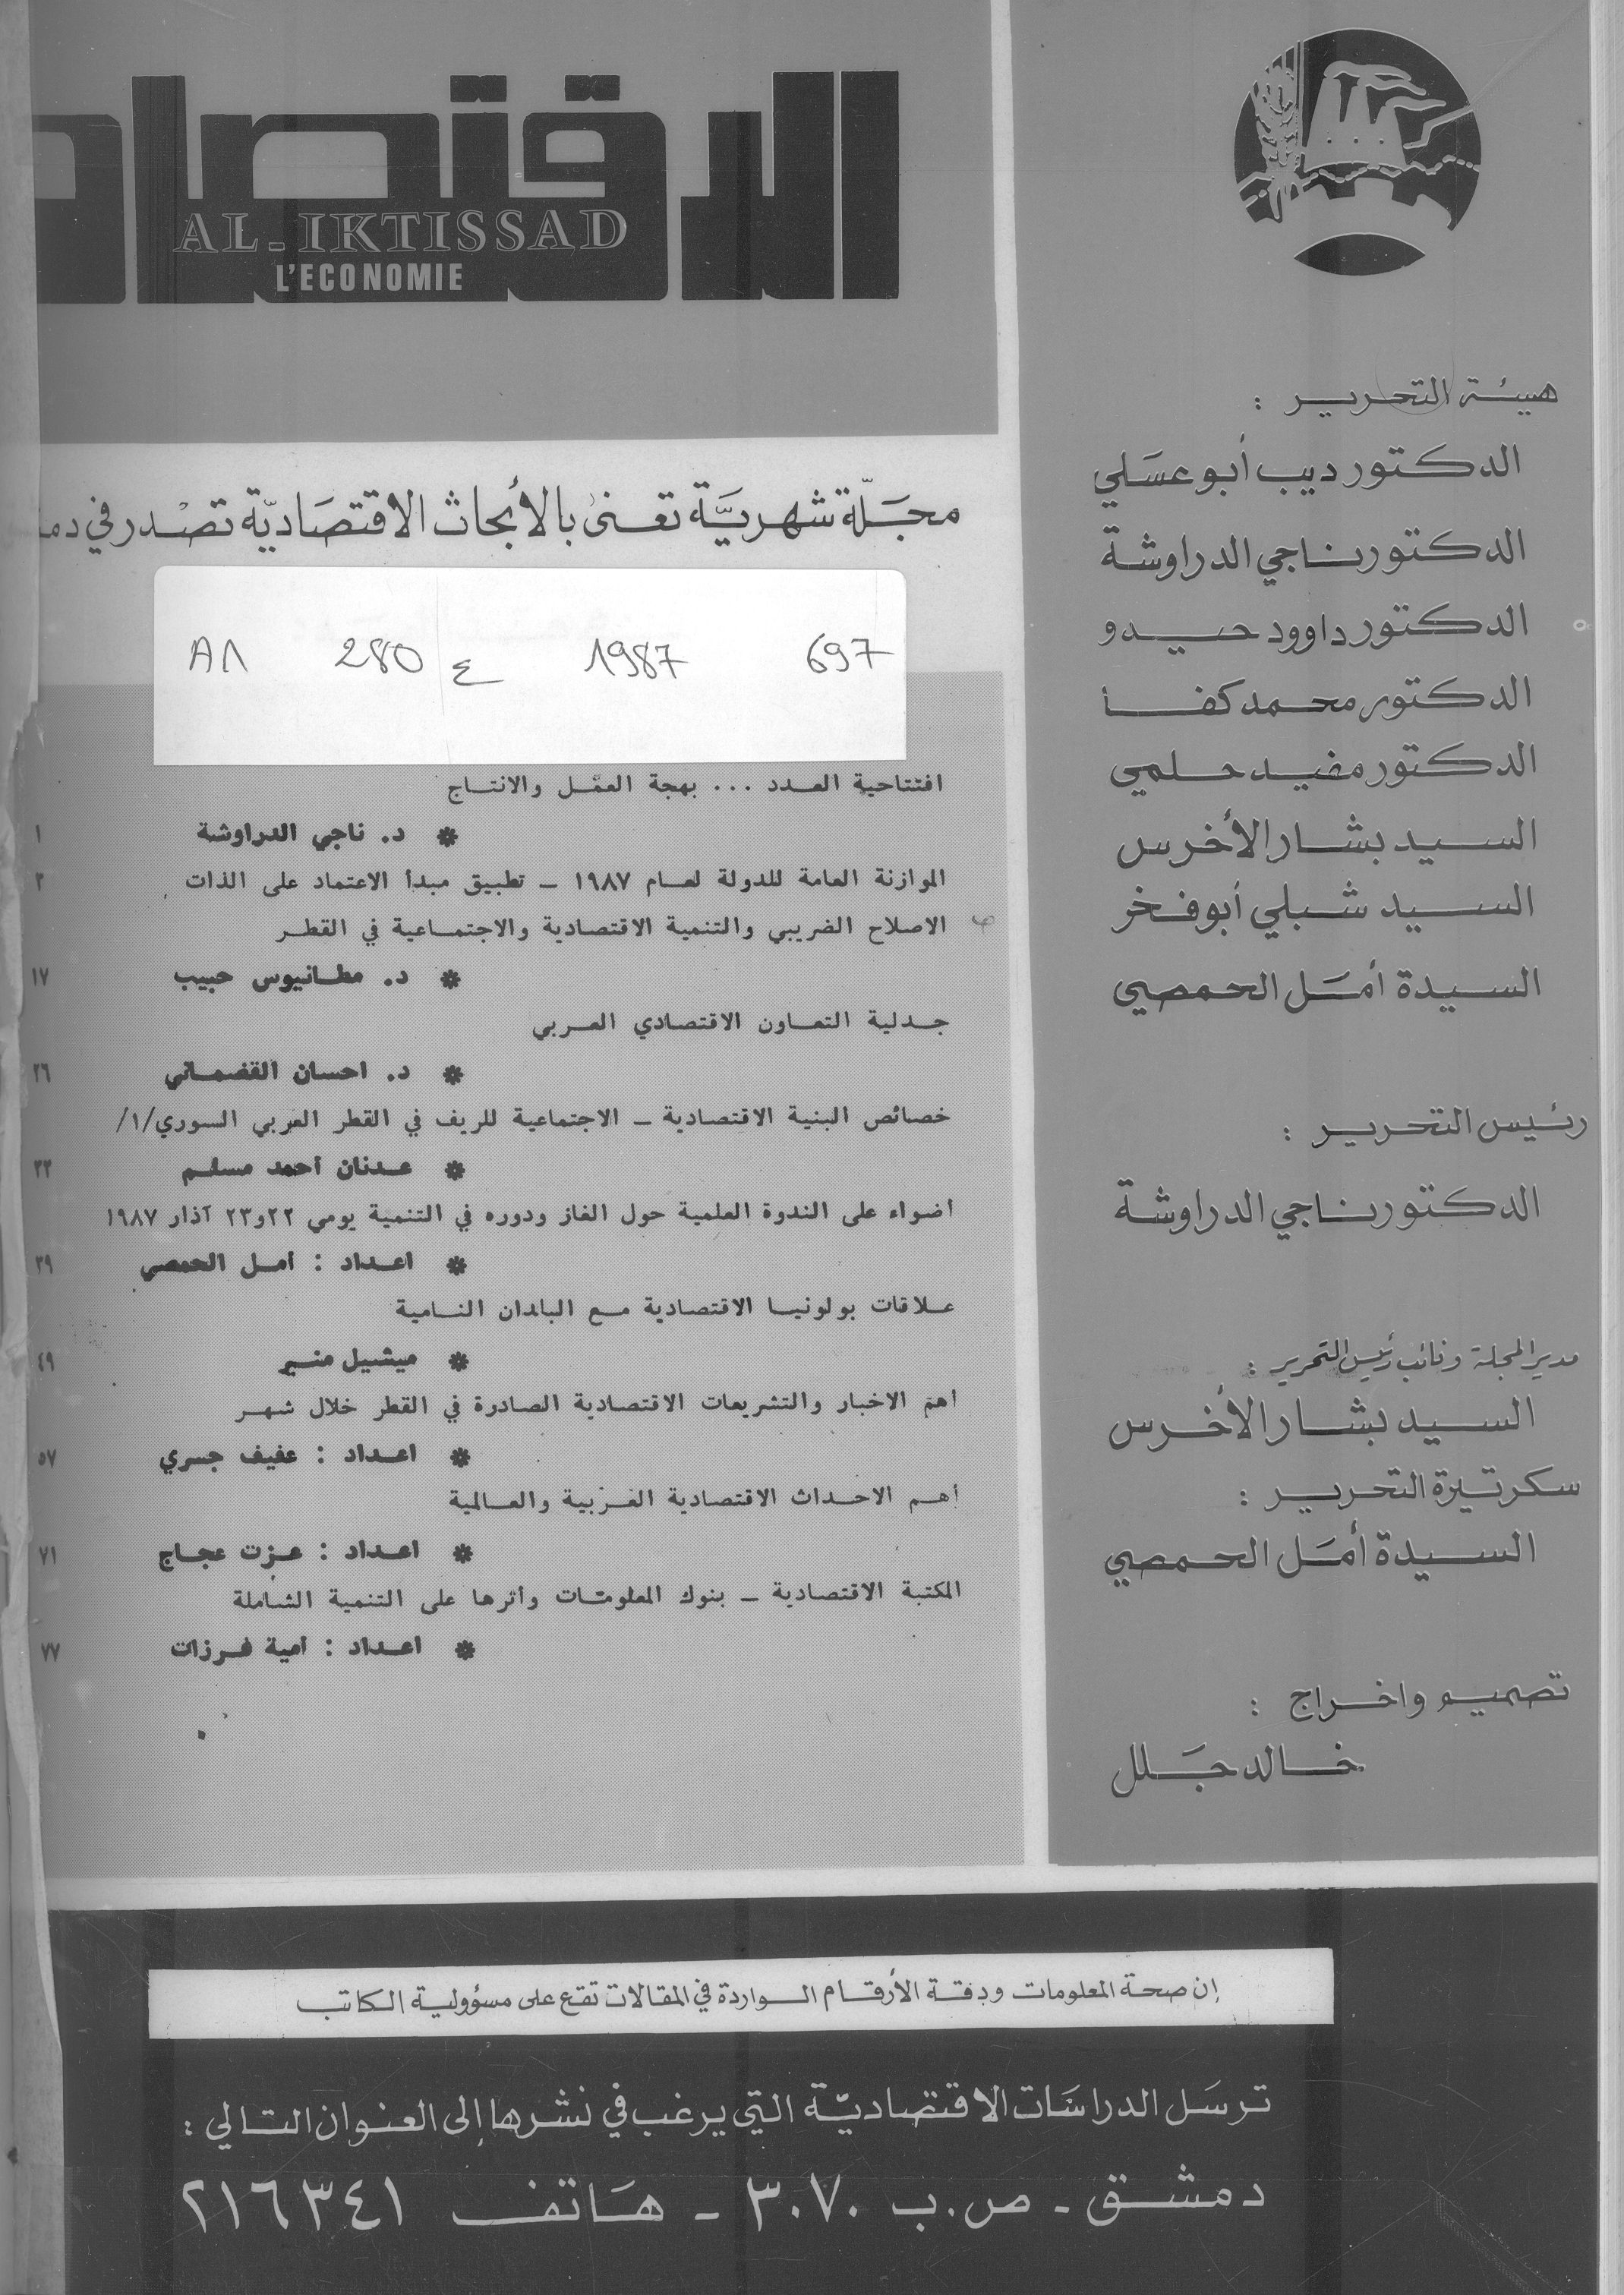 الاقتصاد
AL-IKTISSAD
L'ECONOMIE
مجلة شهرية تعنى بالأبحاث الاقتصادية تصدر في
697 1987 ع 280 A1
افتتاحية العدد ... بهجة العمل والانتاج
* د. ناجي الدراوشة ١
الموازنة العامة للدولة لعام ١٩٨٧ – تطبيق مبدأ الاعتماد على الذات ٣
الاصلاح الضريبي والتنمية الاقتصادية والاجتماعية في القطر
* د. مطانيوس حبيب ١٧
جدلية التعاون الاقتصادي العربي
* د. احسان القضماني ٢٦
خصائص البنية الاقتصادية – الاجتماعية للريف في القطر العربي السوري/١/
* عدنان أحمد مسلم ٣٣
أضواء على الندوة العلمية حول الغاز ودوره في التنمية يومي ٢٢و٢٣ آذار ١٩٨٧
* اعداد : أمل الحمصي ٣٩
علاقات بولونيا الاقتصادية مع البلدان النامية
* ميشيل منير ٤٩
أهم الاخبار والتشريعات الاقتصادية الصادرة في القطر خلال شهر
* اعداد : عفيف جسري ٥٧
أهم الاحداث الاقتصادية العربية والعالمية
* اعداد : عزت عجاج ٧١
المكتبة الاقتصادية – بنوك المعلومات وأثرها على التنمية الشاملة
* اعداد : أمية فرزات ٧٧
هيئة التحرير :
الدكتور ديب أبو عسلي
الدكتور ناجي الدراوشة
الدكتور داوود حيدو
الدكتور محمد كفا
الدكتور مفيد حلمي
السيد بشار الأخرس
السيد شبلي أبو فخر
السيدة أمل الحمصي
رئيس التحرير :
الدكتور ناجي الدراوشة
مدير المجلة ونائب رئيس التحرير :
السيد بشار الأخرس
سكرتيرة التحرير :
السيدة أمل الحمصي
تصميم واخراج :
خالد جلل
إن صحة المعلومات ودقة الأرقام الواردة في المقالات تقع على مسؤولية الكاتب
ترسل الدراسات الاقتصادية التي يرغب في نشرها إلى العنوان التالي :
دمشق - ص.ب ٣٠٧٠ - هاتف ٢١٦٣٤١